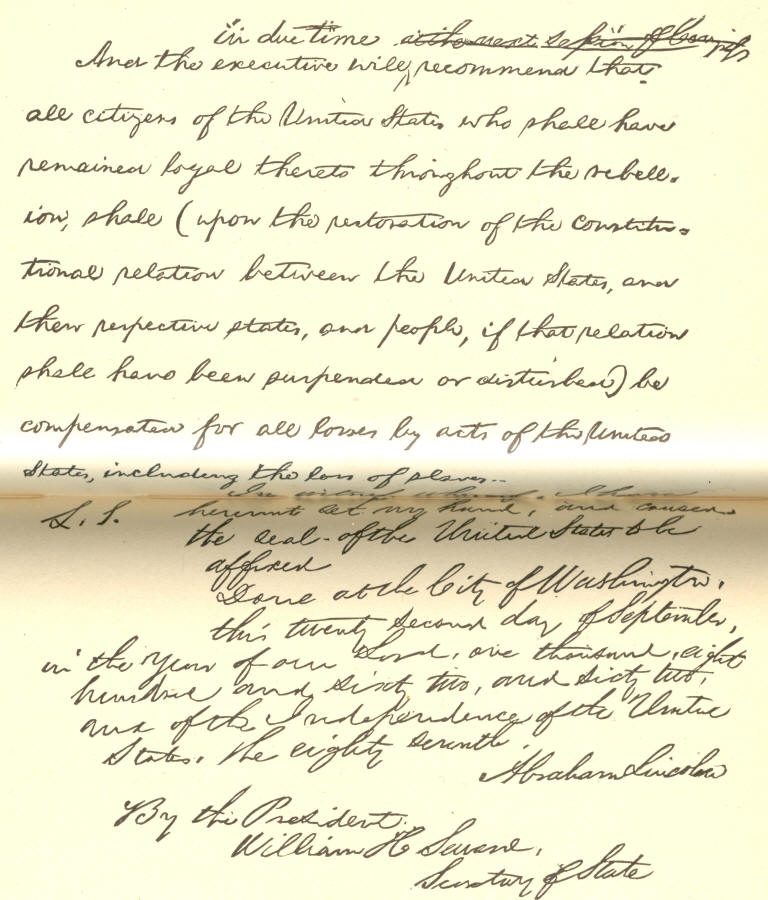 "in due time" at the next session of Congress
And the executive will recommend that
all citizens of the United States who shall have
remained loyal thereto throughout the rebell-
ion, shall (upon the restoration of the constitu-
tional relation between the United States, and
their respective states, and people, if that relation
shall have been suspended or disturbed) be
compensated for all losses by acts of the United
States, including the loss of slaves.
In witness whereof, I have
L. S. hereunto set my hand, and caused
the seal of the United States to be
affixed
Done at the City of Washington,
this twenty second day of September,
in the year of our Lord, one thousand, eight
hundred and sixty two, and sixty two,
and of the Independence of the United
States, the eighty seventh.
Abraham Lincoln
By the President.
William H Seward,
Secretary of State